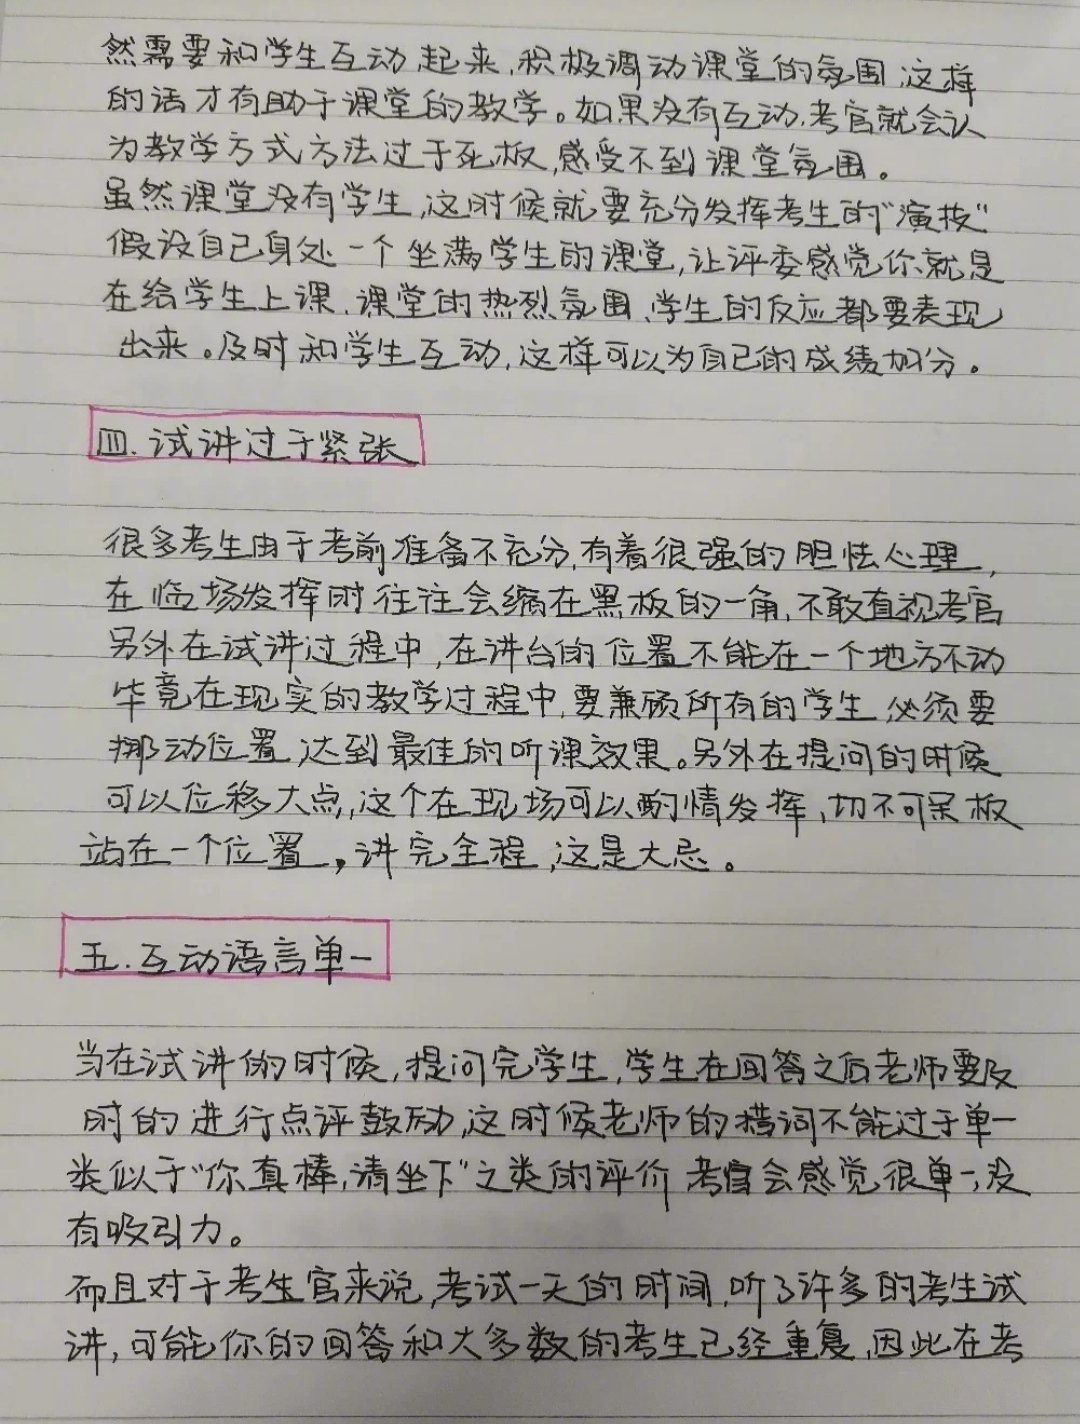 然需要和学生互动起来,积极调动课堂的氛围,这样
的话才有助于课堂的教学。如果没有互动,考官就会认
为教学方式方法过于死板,感受不到课堂氛围。
虽然课堂没有学生,这时候就要充分发挥考生的“演技”
假设自己身处一个坐满学生的课堂,让评委感觉你就是
在给学生上课,课堂的热烈氛围、学生的反应都要表现
出来。及时和学生互动,这样可以为自己的成绩加分。
四.试讲过于紧张
很多考生由于考前准备不充分,有着很强的胆怯心理,
在临场发挥时往往会缩在黑板的一角,不敢直视考官
另外在试讲过程中,在讲台的位置不能在一个地方不动
毕竟在现实的教学过程中,要兼顾所有的学生,必须要
挪动位置,达到最佳的听课效果。另外在提问的时候
可以位移大点,这个在现场可以酌情发挥,切不可呆板
站在一个位置,讲完全程,这是大忌。
五.互动语言单一
当在试讲的时候,提问完学生,学生在回答之后老师要及
时的进行点评鼓励,这时候老师的措词不能过于单一
类似于“你真棒,请坐下”之类的评价考官会感觉很单一,没
有吸引力。
而且对于考生官来说,考试一天的时间,听了许多的考生试
讲,可能你的回答和大多数的考生已经重复,因此在考